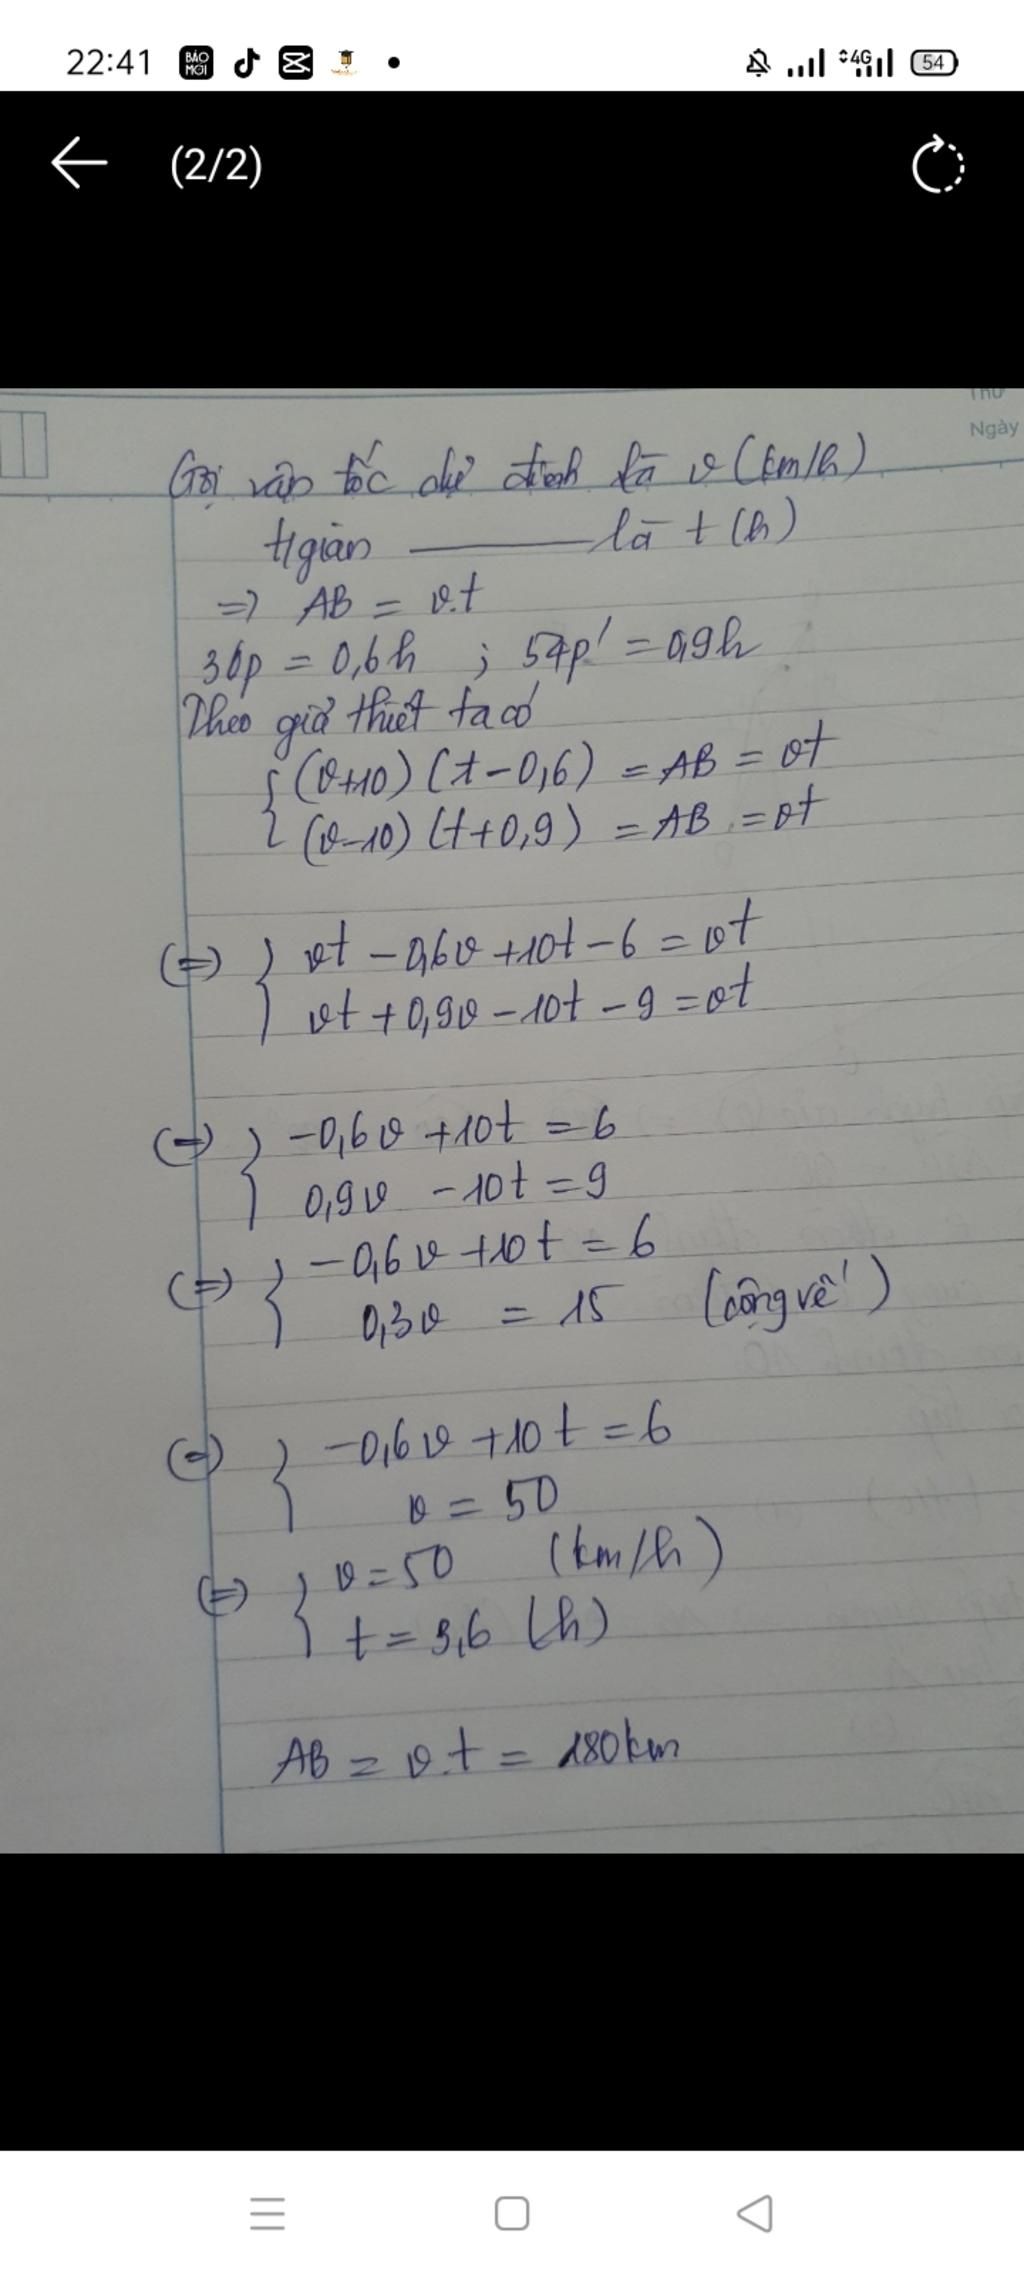 22:41 BÁO MỚI 4G 54
(2/2)
Thứ
Ngày
Gọi vận tốc dự định là v (km/h)
t/gian ——— là t (h)
=> AB = v.t
36p = 0,6h ; 54p' = 0,9h
Theo giả thiết ta có
{ (v+10) (t-0,6) = AB = vt
(v-10) (t+0,9) = AB = vt
(=) } vt - 0,6v + 10t - 6 = vt
vt + 0,9v - 10t - 9 = vt
(=) } -0,6v + 10t = 6
0,9v - 10t = 9
(=) { -0,6v + 10t = 6
0,3v = 15 (cộng vế)
(=) } -0,6v + 10t = 6
v = 50
(=) { v = 50 (km/h)
t = 3,6 (h)
AB = v.t = 180km